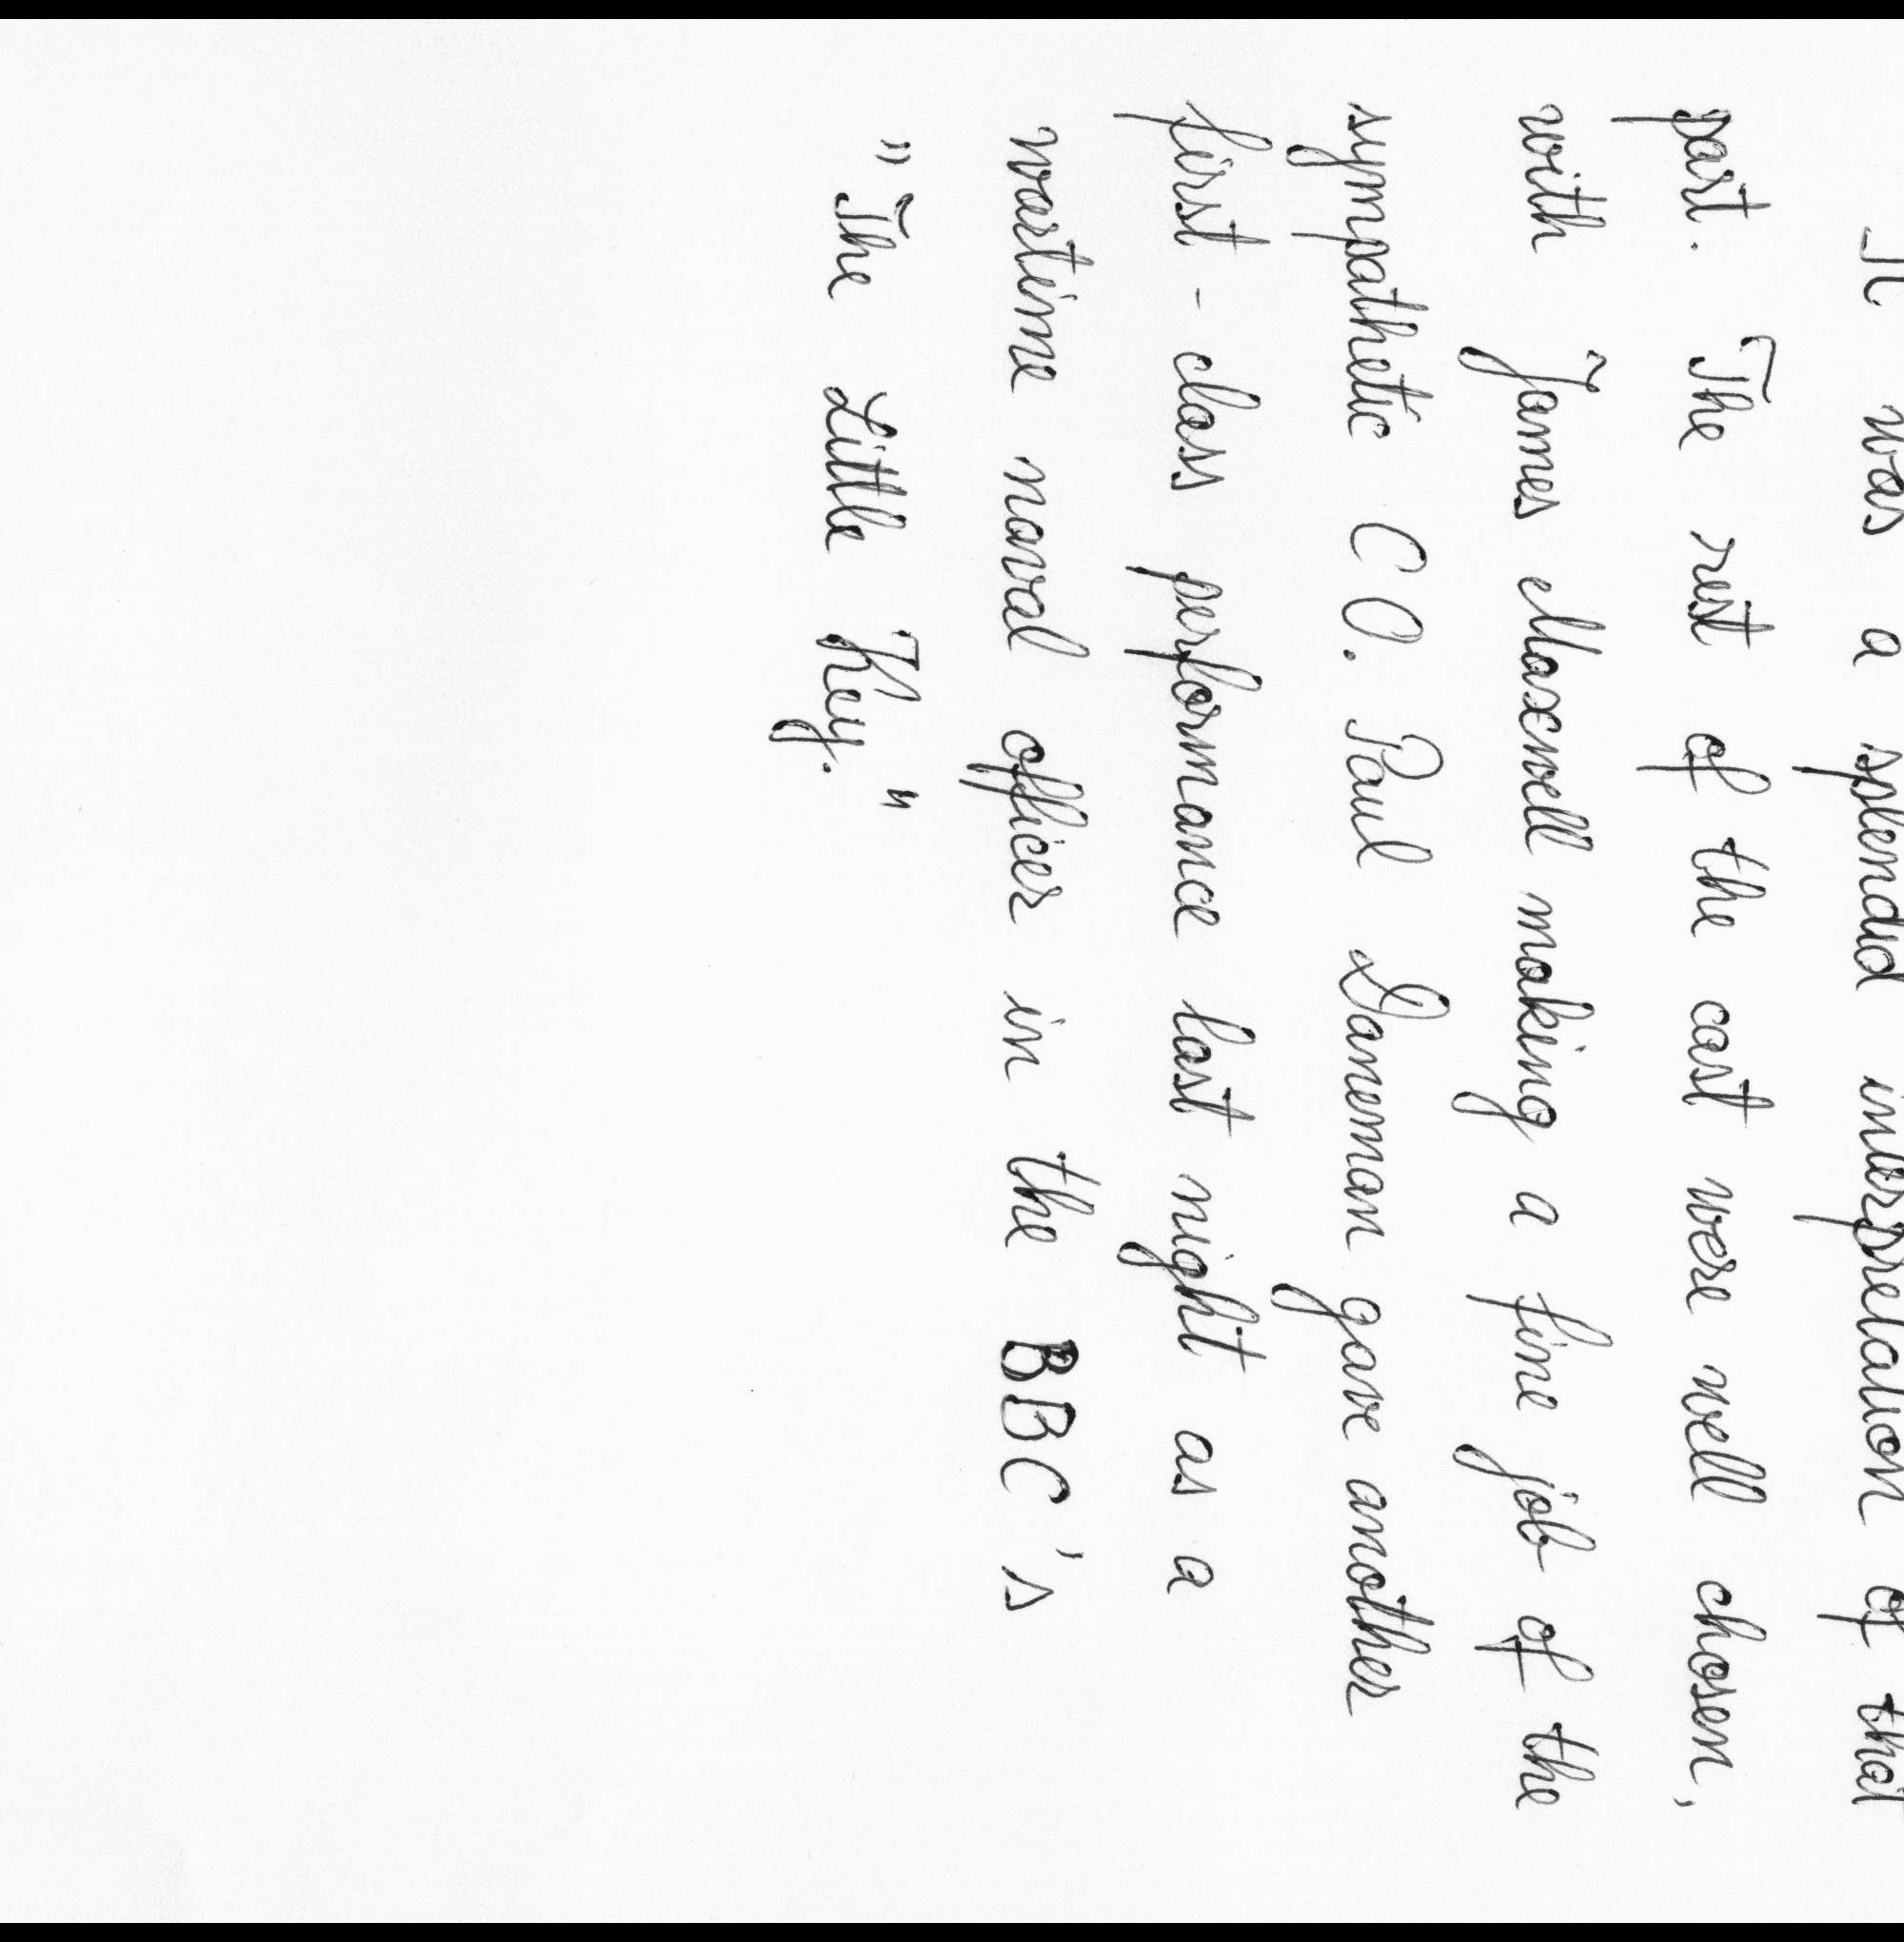 It was a splendid interpretation of that
part. The rest of the cast were well chosen,
with James Maxwell making a fine job of the
sympathetic C O. Paul Daneman gave another
first - class performance last night as a
wartime naval officer in the BBC's
"The Little Key."